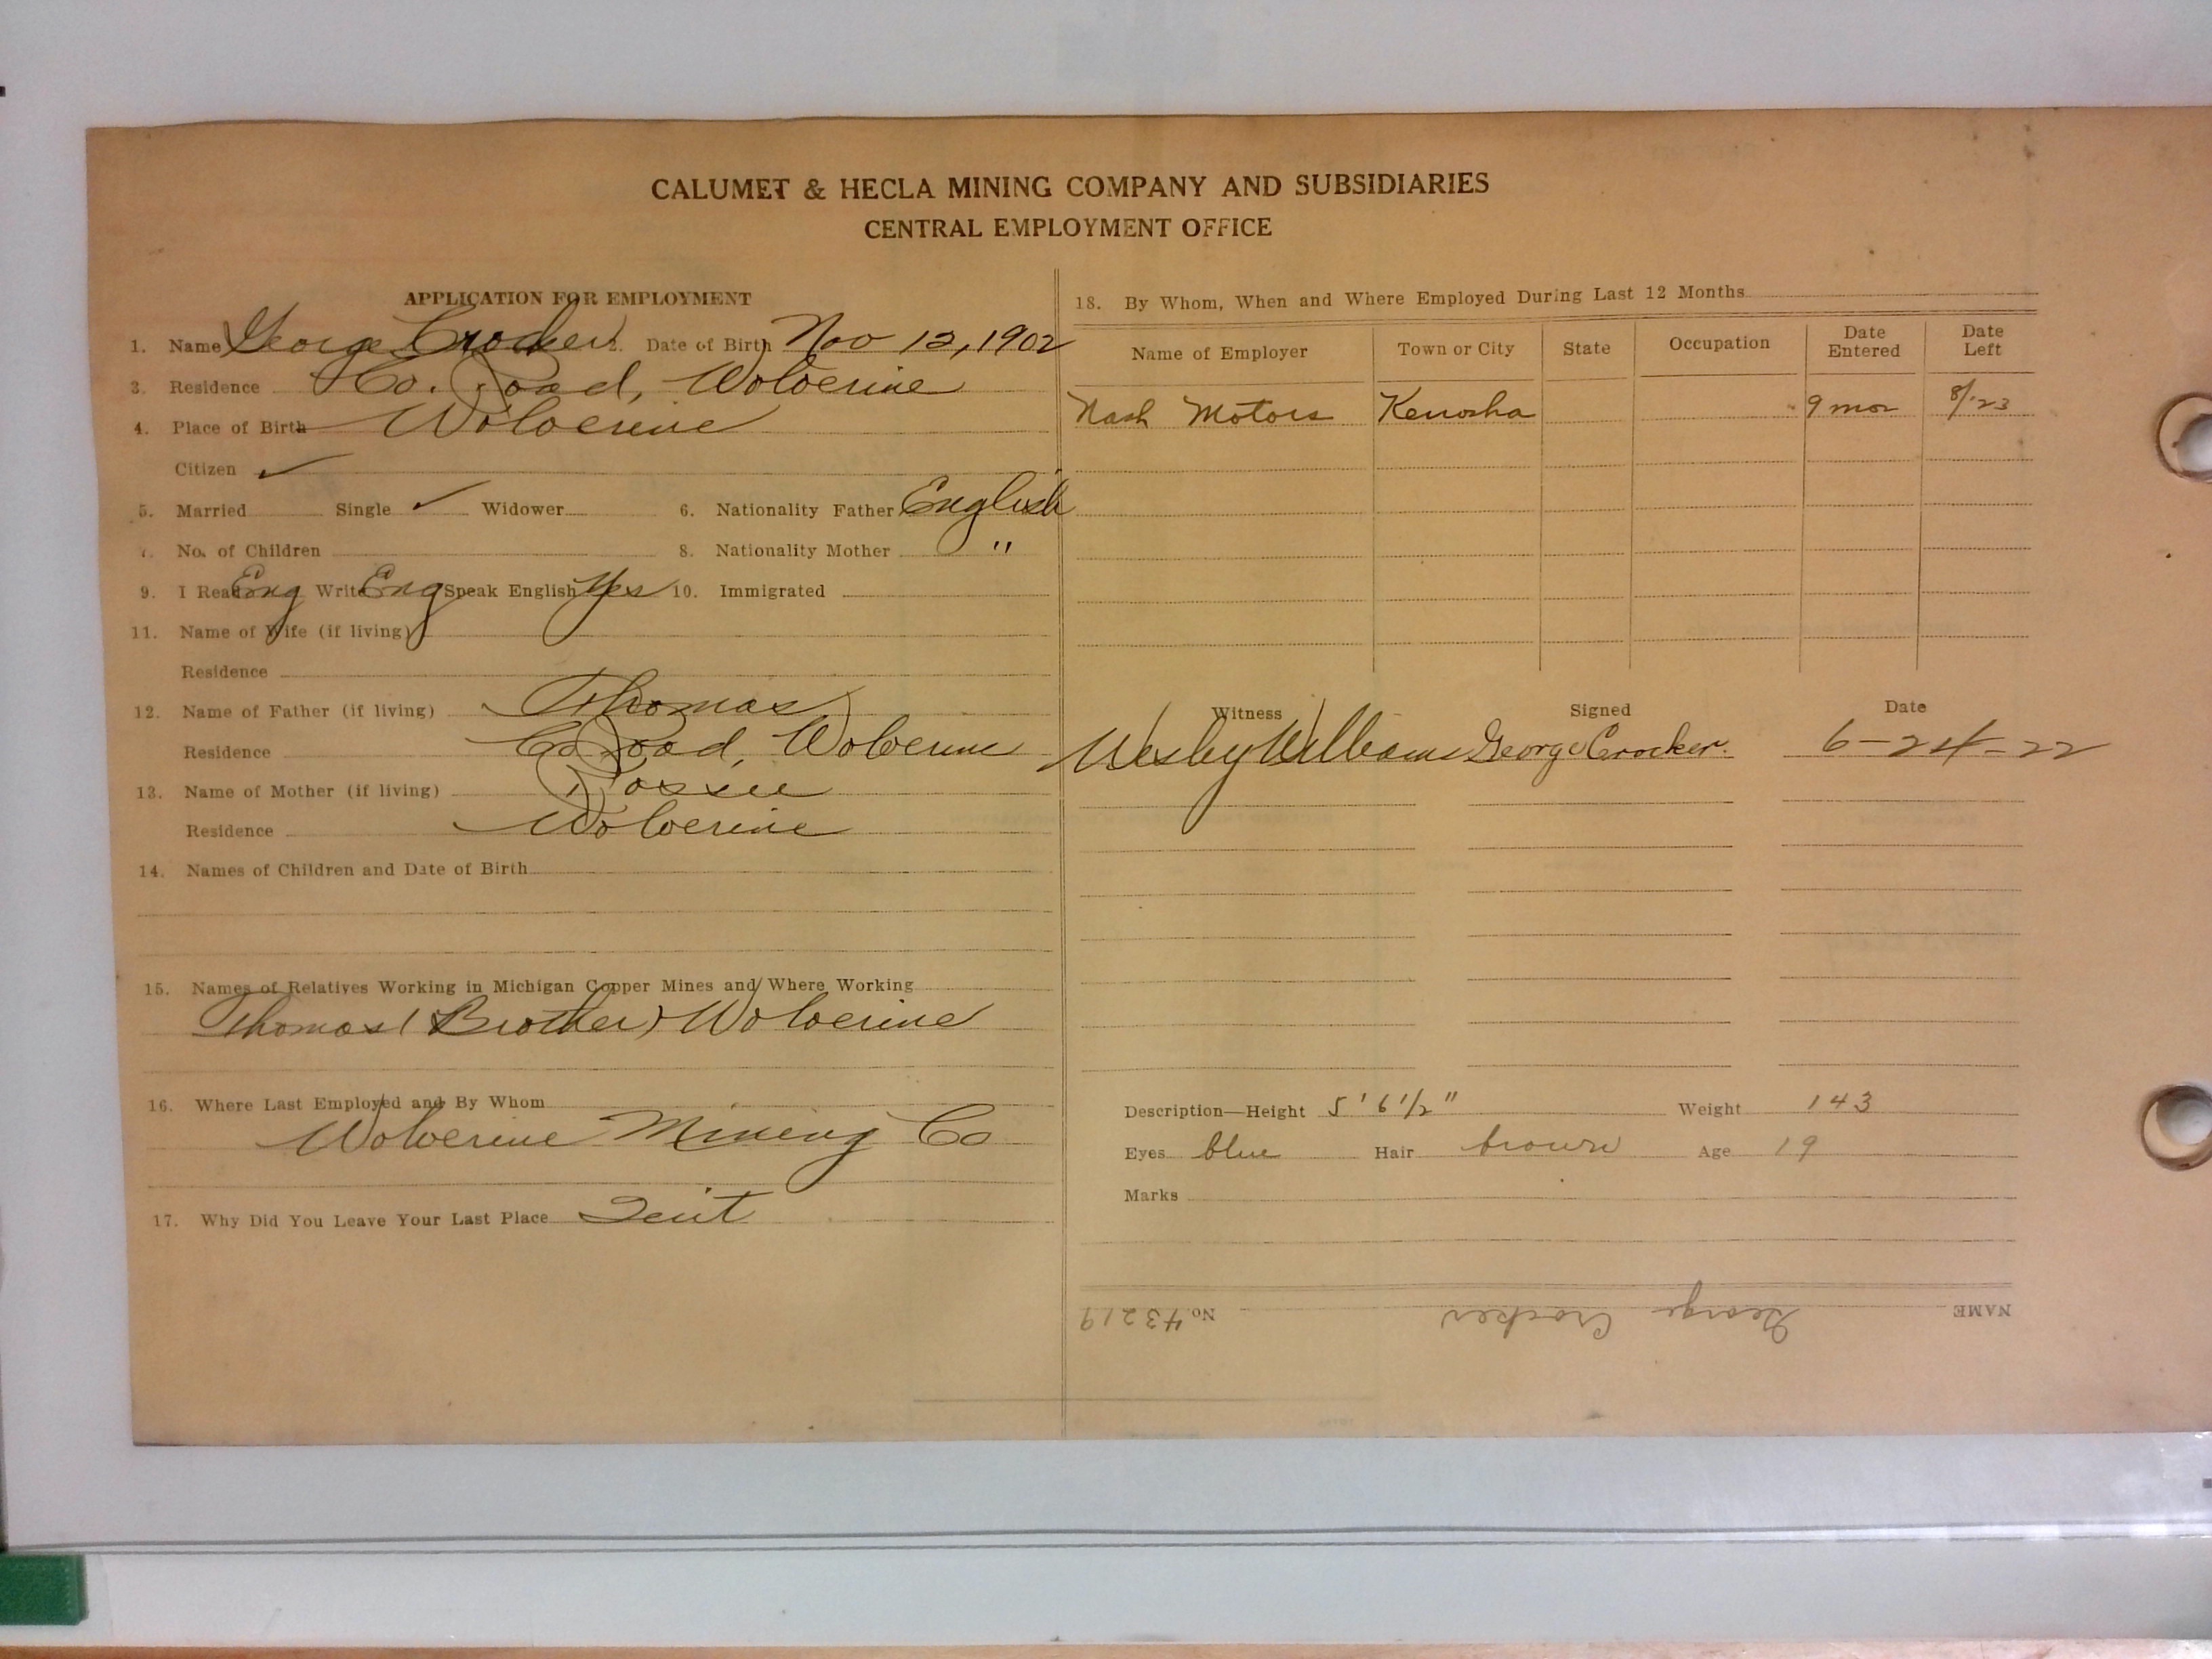 CALUMET & HECLA MINING COMPANY AND SUBSIDIARIES
CENTRAL EMPLOYMENT OFFICE
APPLICATION FOR EMPLOYMENT
1. Name George Crocker 2. Date of Birth Nov 12, 1902
3. Residence Co. Road, Wolverine
4. Place of Birth Wolverine
Citizen ✓
5. Married Single ✓ Widower 6. Nationality Father English
7. No. of Children 8. Nationality Mother "
9. I Read Eng Write Eng Speak English Yes 10. Immigrated
11. Name of Wife (if living)
Residence
12. Name of Father (if living) Thomas
Residence Co Road, Wolverine
13. Name of Mother (if living)
Residence Wolverine
14. Names of Children and Date of Birth
15. Names of Relatives Working in Michigan Copper Mines and Where Working
Thomas (Brother) Wolverine
16. Where Last Employed and By Whom
Wolverine Mining Co
17. Why Did You Leave Your Last Place Quit
18. By Whom, When and Where Employed During Last 12 Months
Name of Employer Town or City State Occupation Date Entered Date Left
Nash Motors Kenosha 9 mos 8/23
Witness Signed Date
Wesley Williams George Crocker. 6-24-22
Description—Height 5' 6 1/2" Weight 143
Eyes blue Hair brown Age 19
Marks
NAME George Crocker No. 43219